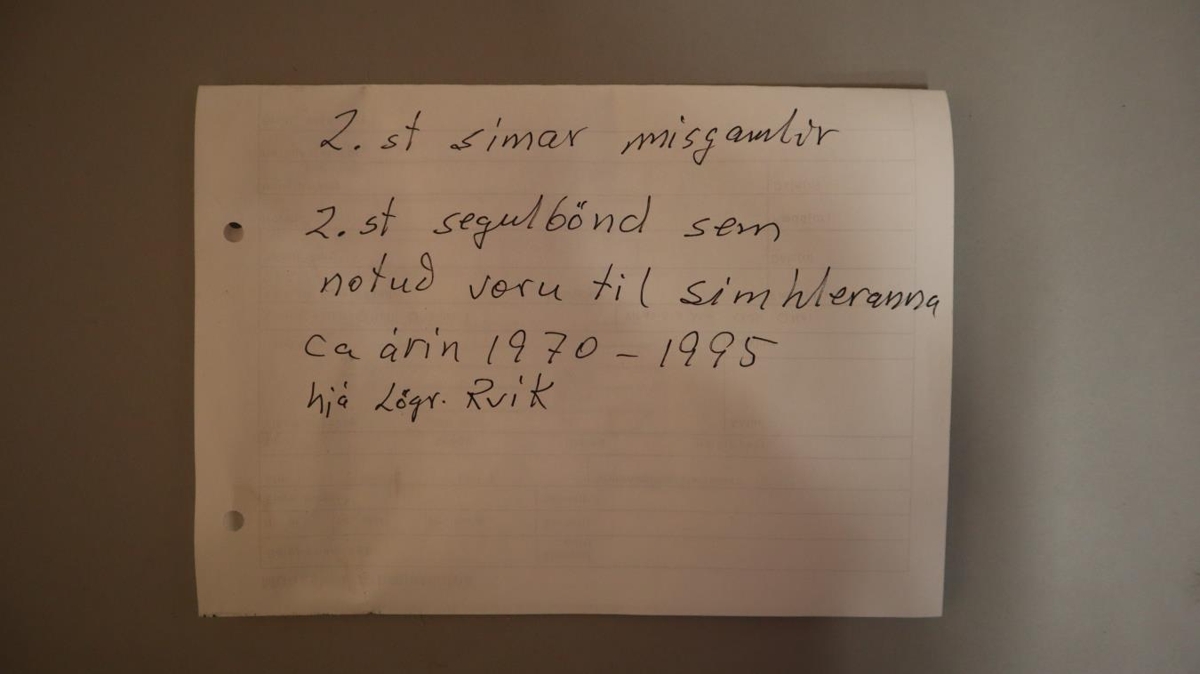 2. st símar misgamlir
2. st segulbönd sem
notuð voru til símhleranna
ca árin 1970 - 1995
hjá Lögr. Rvík